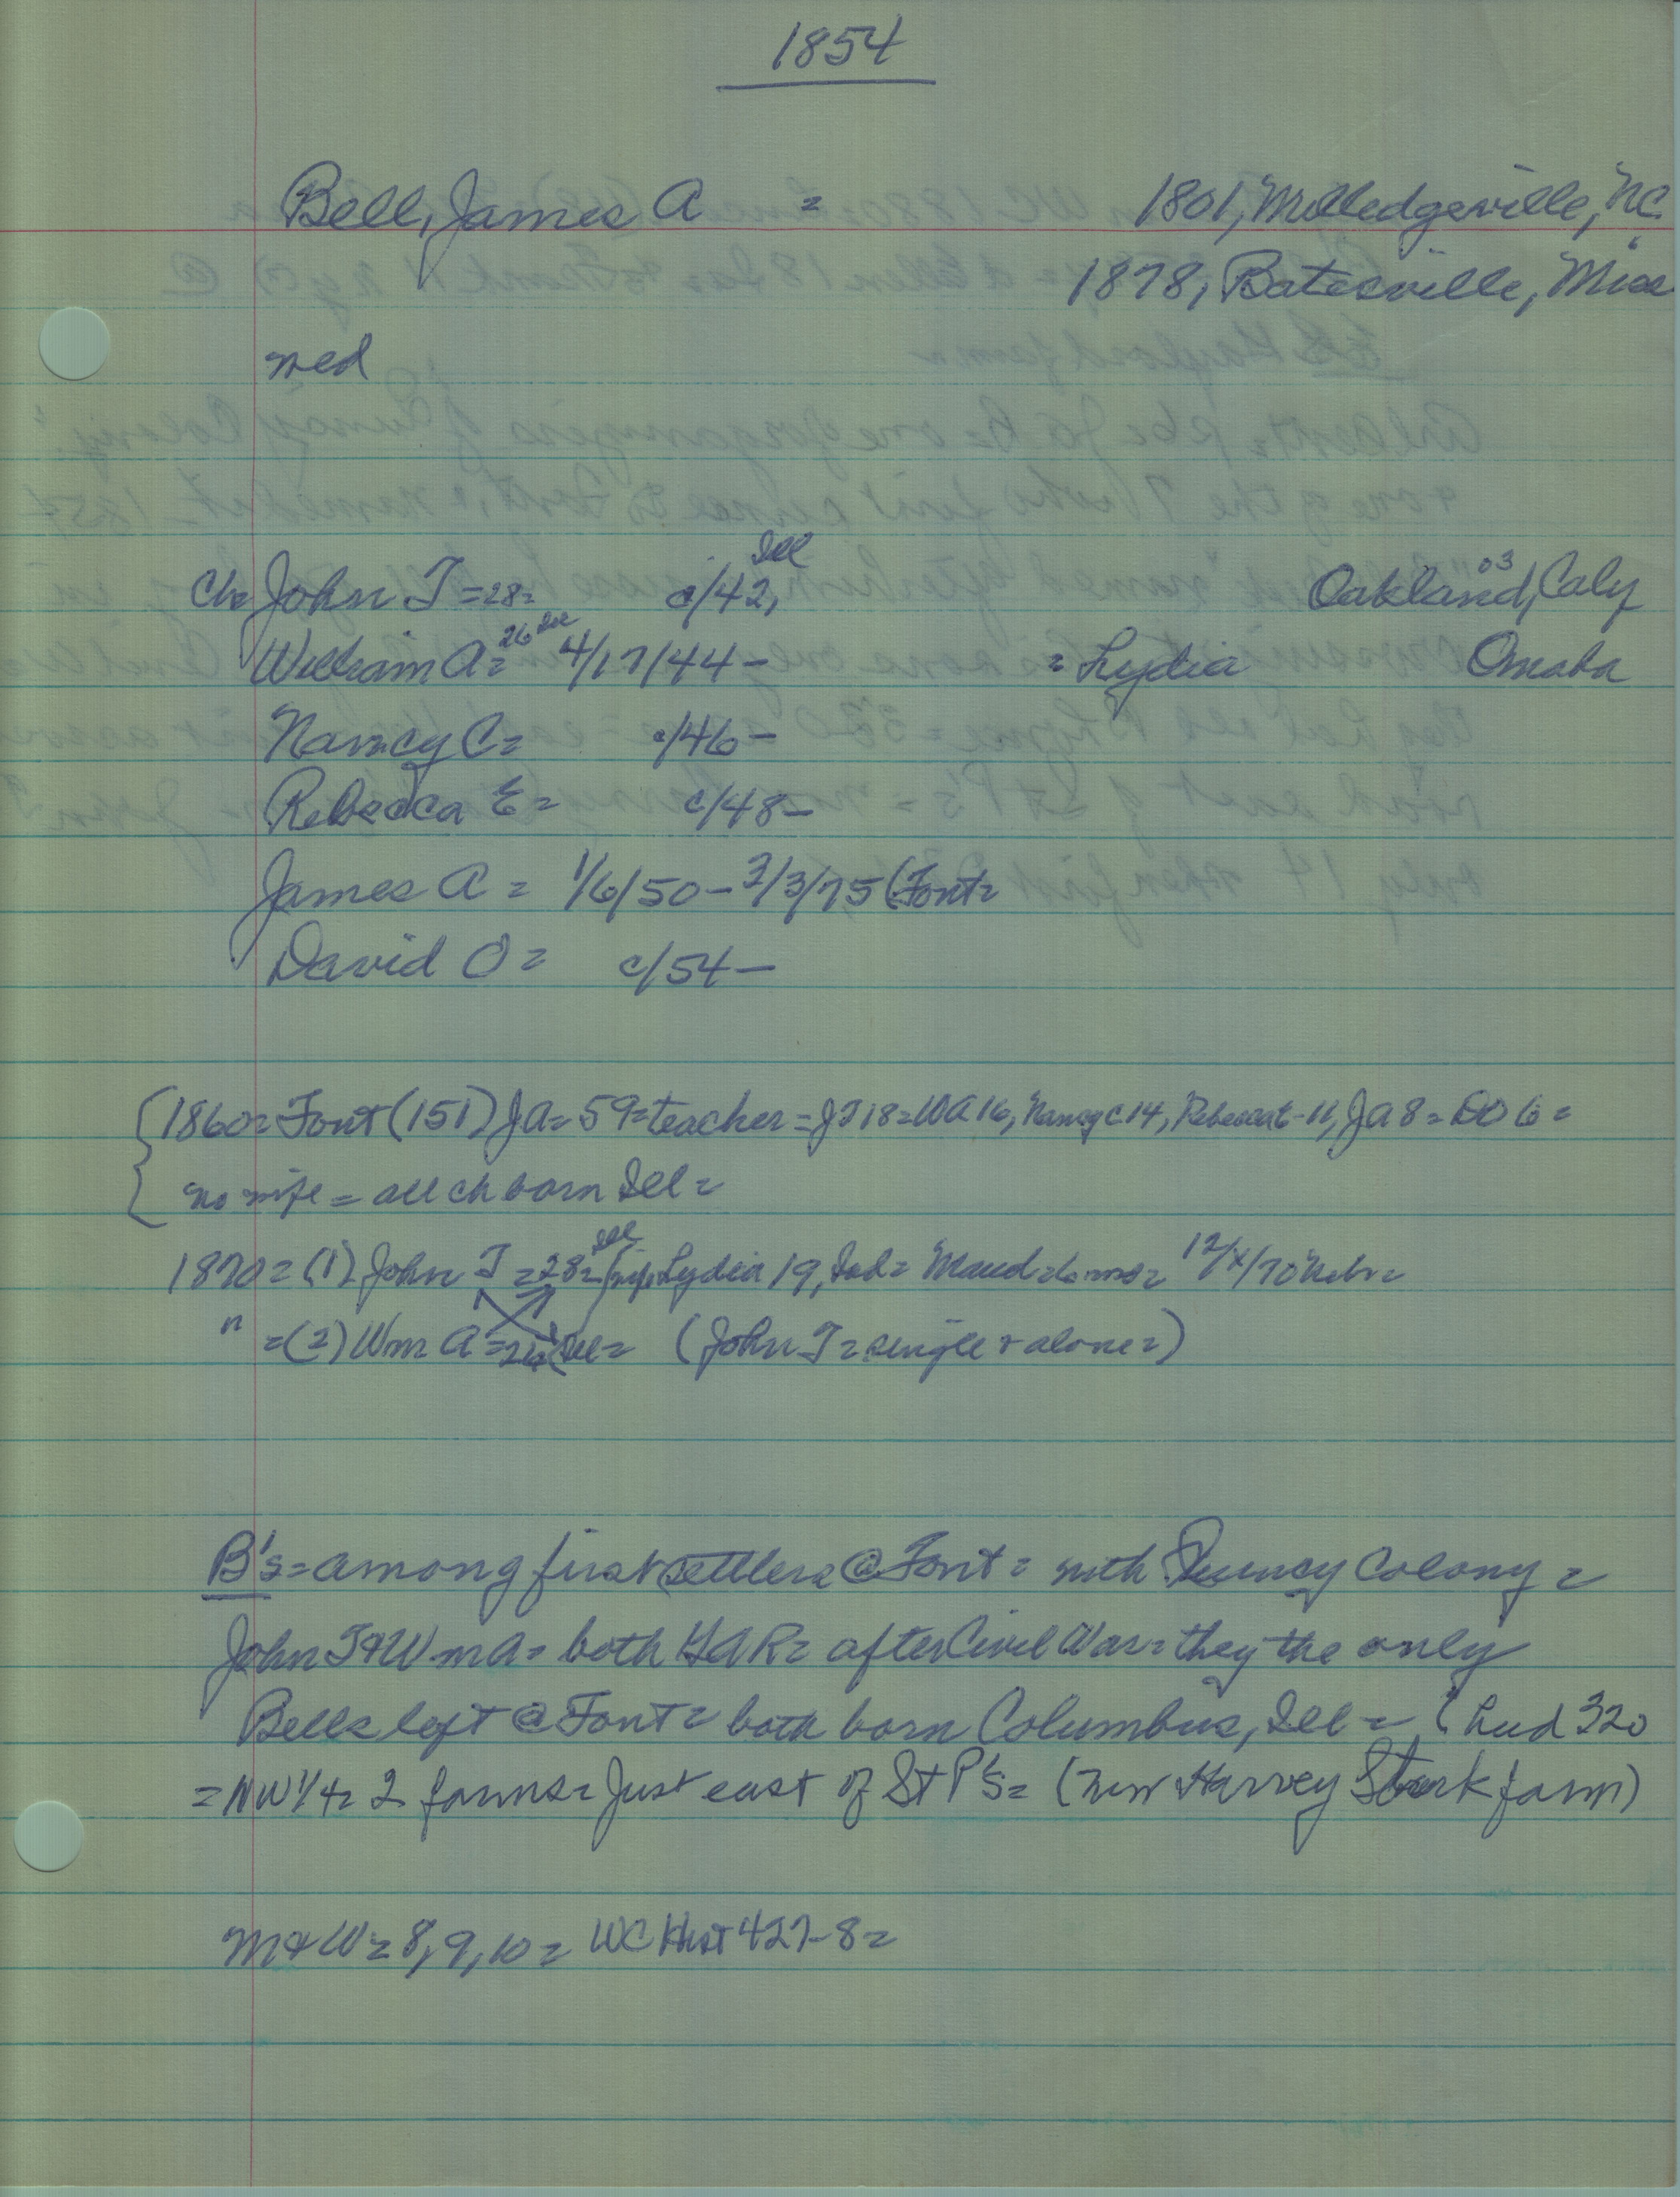 1854
Bell, James A = 1801, Milledgeville, NC.
1878, Batesville, Miss
med
Ill
Ch= John T =28= c/42, Oakland, 03 Caly
William A= 26 Ill 4/17/44 - = Lydia Omaha
Nancy C= c/46 -
Rebecca E = c/48 -
James A = 1/6/50 - 3/3/75 (Font=
David O = c/54 -
1860= Font (151) JA= 59=teacher = JT 18= WA 16, Nancy C 14, Rebecca E - 11, JA 8 = DO 6 =
no wife = all ch born Ill =
1870 = (1) John T =28= Ill Lydia 19, Ind= Maud =6 mos= 12/x/70 Nebr=
" = (2) Wm A =26 Ill= (John T = single & alone=)
B's = among first settlers @ Font = with Quincy Colony =
John T & Wm A= both GAR= after Civil War= they the only
Bells left @ Font = both born Columbus, Ill = (had 320
= NW 1/4= 2 farms= Just east of St P's= (now Harvey Stork farm)
M & W = 8, 9, 10 = WC Hist 427-8=